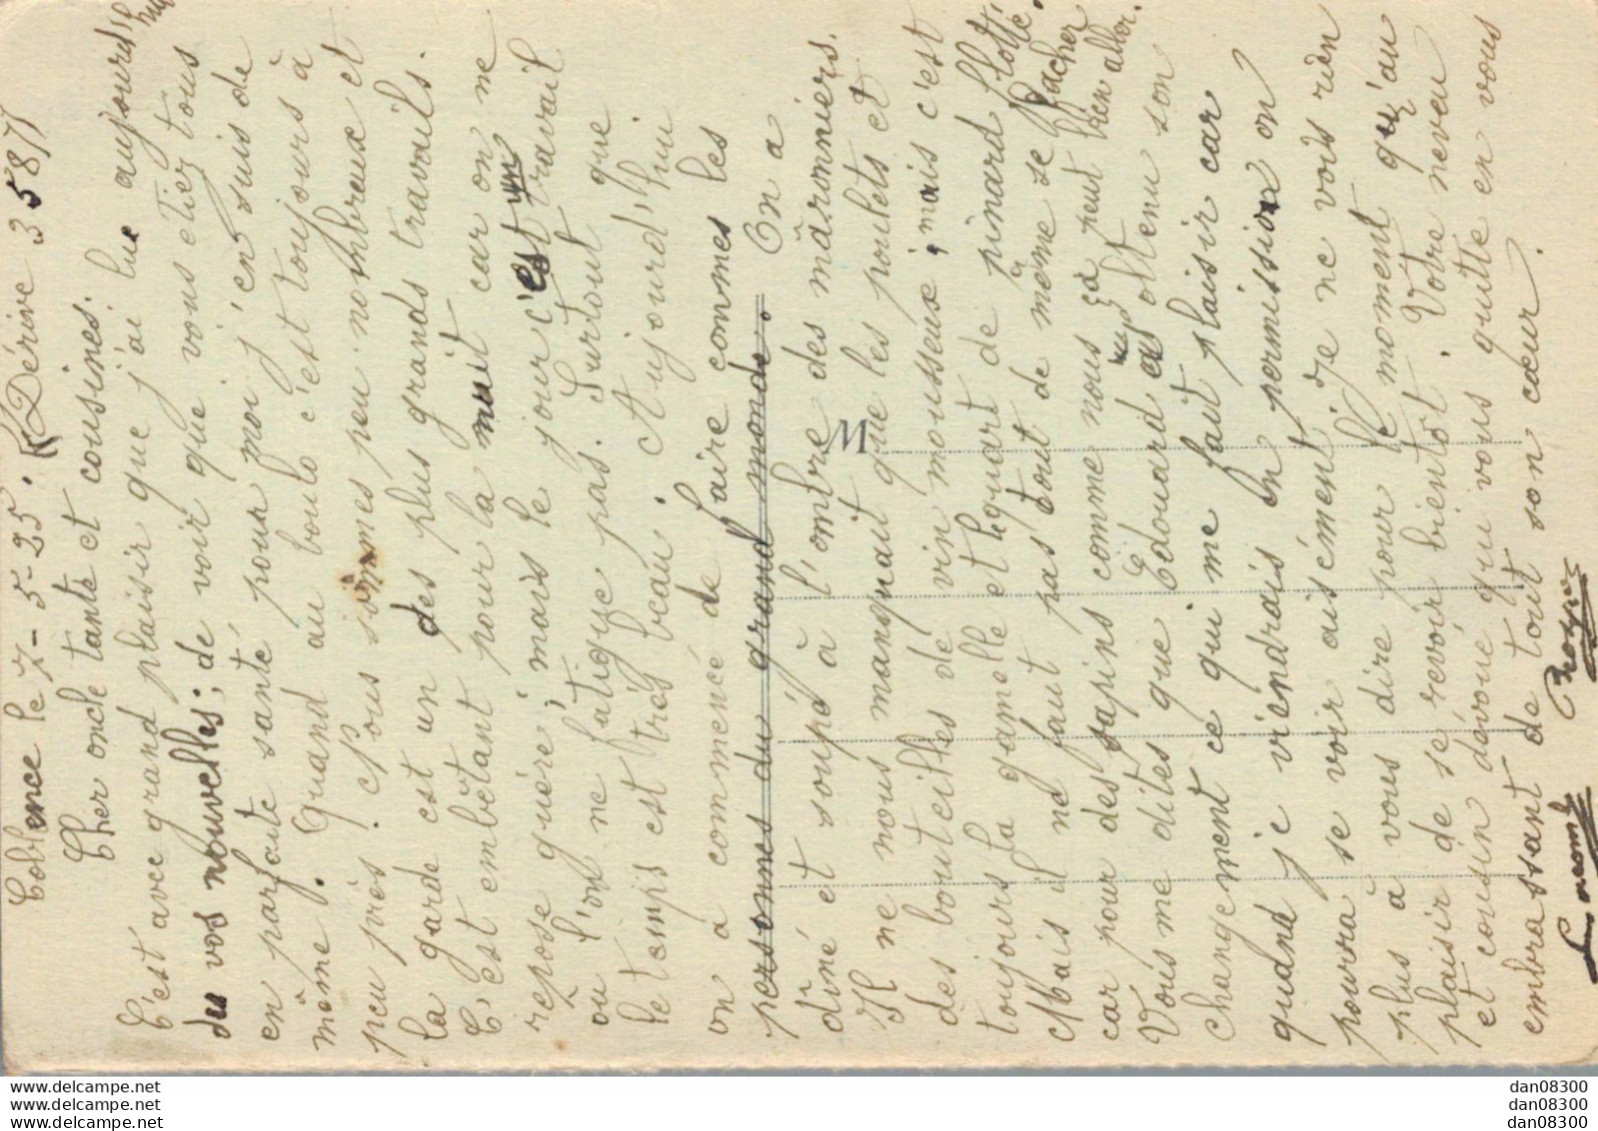 Coblence le 7-5-25. (Dérive 3587)
Cher oncle tante et cousines.
C'est avec grand plaisir que j'ai lue aujourd'hui
du vos nouvelles; de voir que vous etiez tous
en parfaite santé pour moi j'en suis de
même. Quand au boulo c'est toujours à
peu près. Nous sommes peu nombreux et
la garde est un des plus grands travails.
C'est embêtant pour la nuit car on ne
repose guére; mais le jour c'est un travail
ou l'on ne fatigue pas. Surtout que
le temps est trés beau. Aujourd'hui
on a commencé de faire commes les
personnes du grand monde. On a
dîné et soupé à l'ombre des mâronniers.
Il ne nous manquait que les poulets et
des bouteilles de vin mousseux; mais c'est
toujours la gamelle et le quart de pinard flotté.
Mais il ne faut pas tout de même se facher
car pour des sapins comme nous ça peut bien aller.
Vous me dites que Edouard as obtenu son
changement ce qui me fait plaisir car
quand je viendrais en permission on
pourra se voir aisément. Je ne vois rien
plus à vous dire pour le moment qu'au
plaisir de se revoir bientôt. Votre neveu
et cousin dévoué qui vous quitte en vous
embrassant de tout son cœur.
Prosper
M
delcampe.net
delcampe.net
delcampe.net
dan08300
dan08300
dan08300